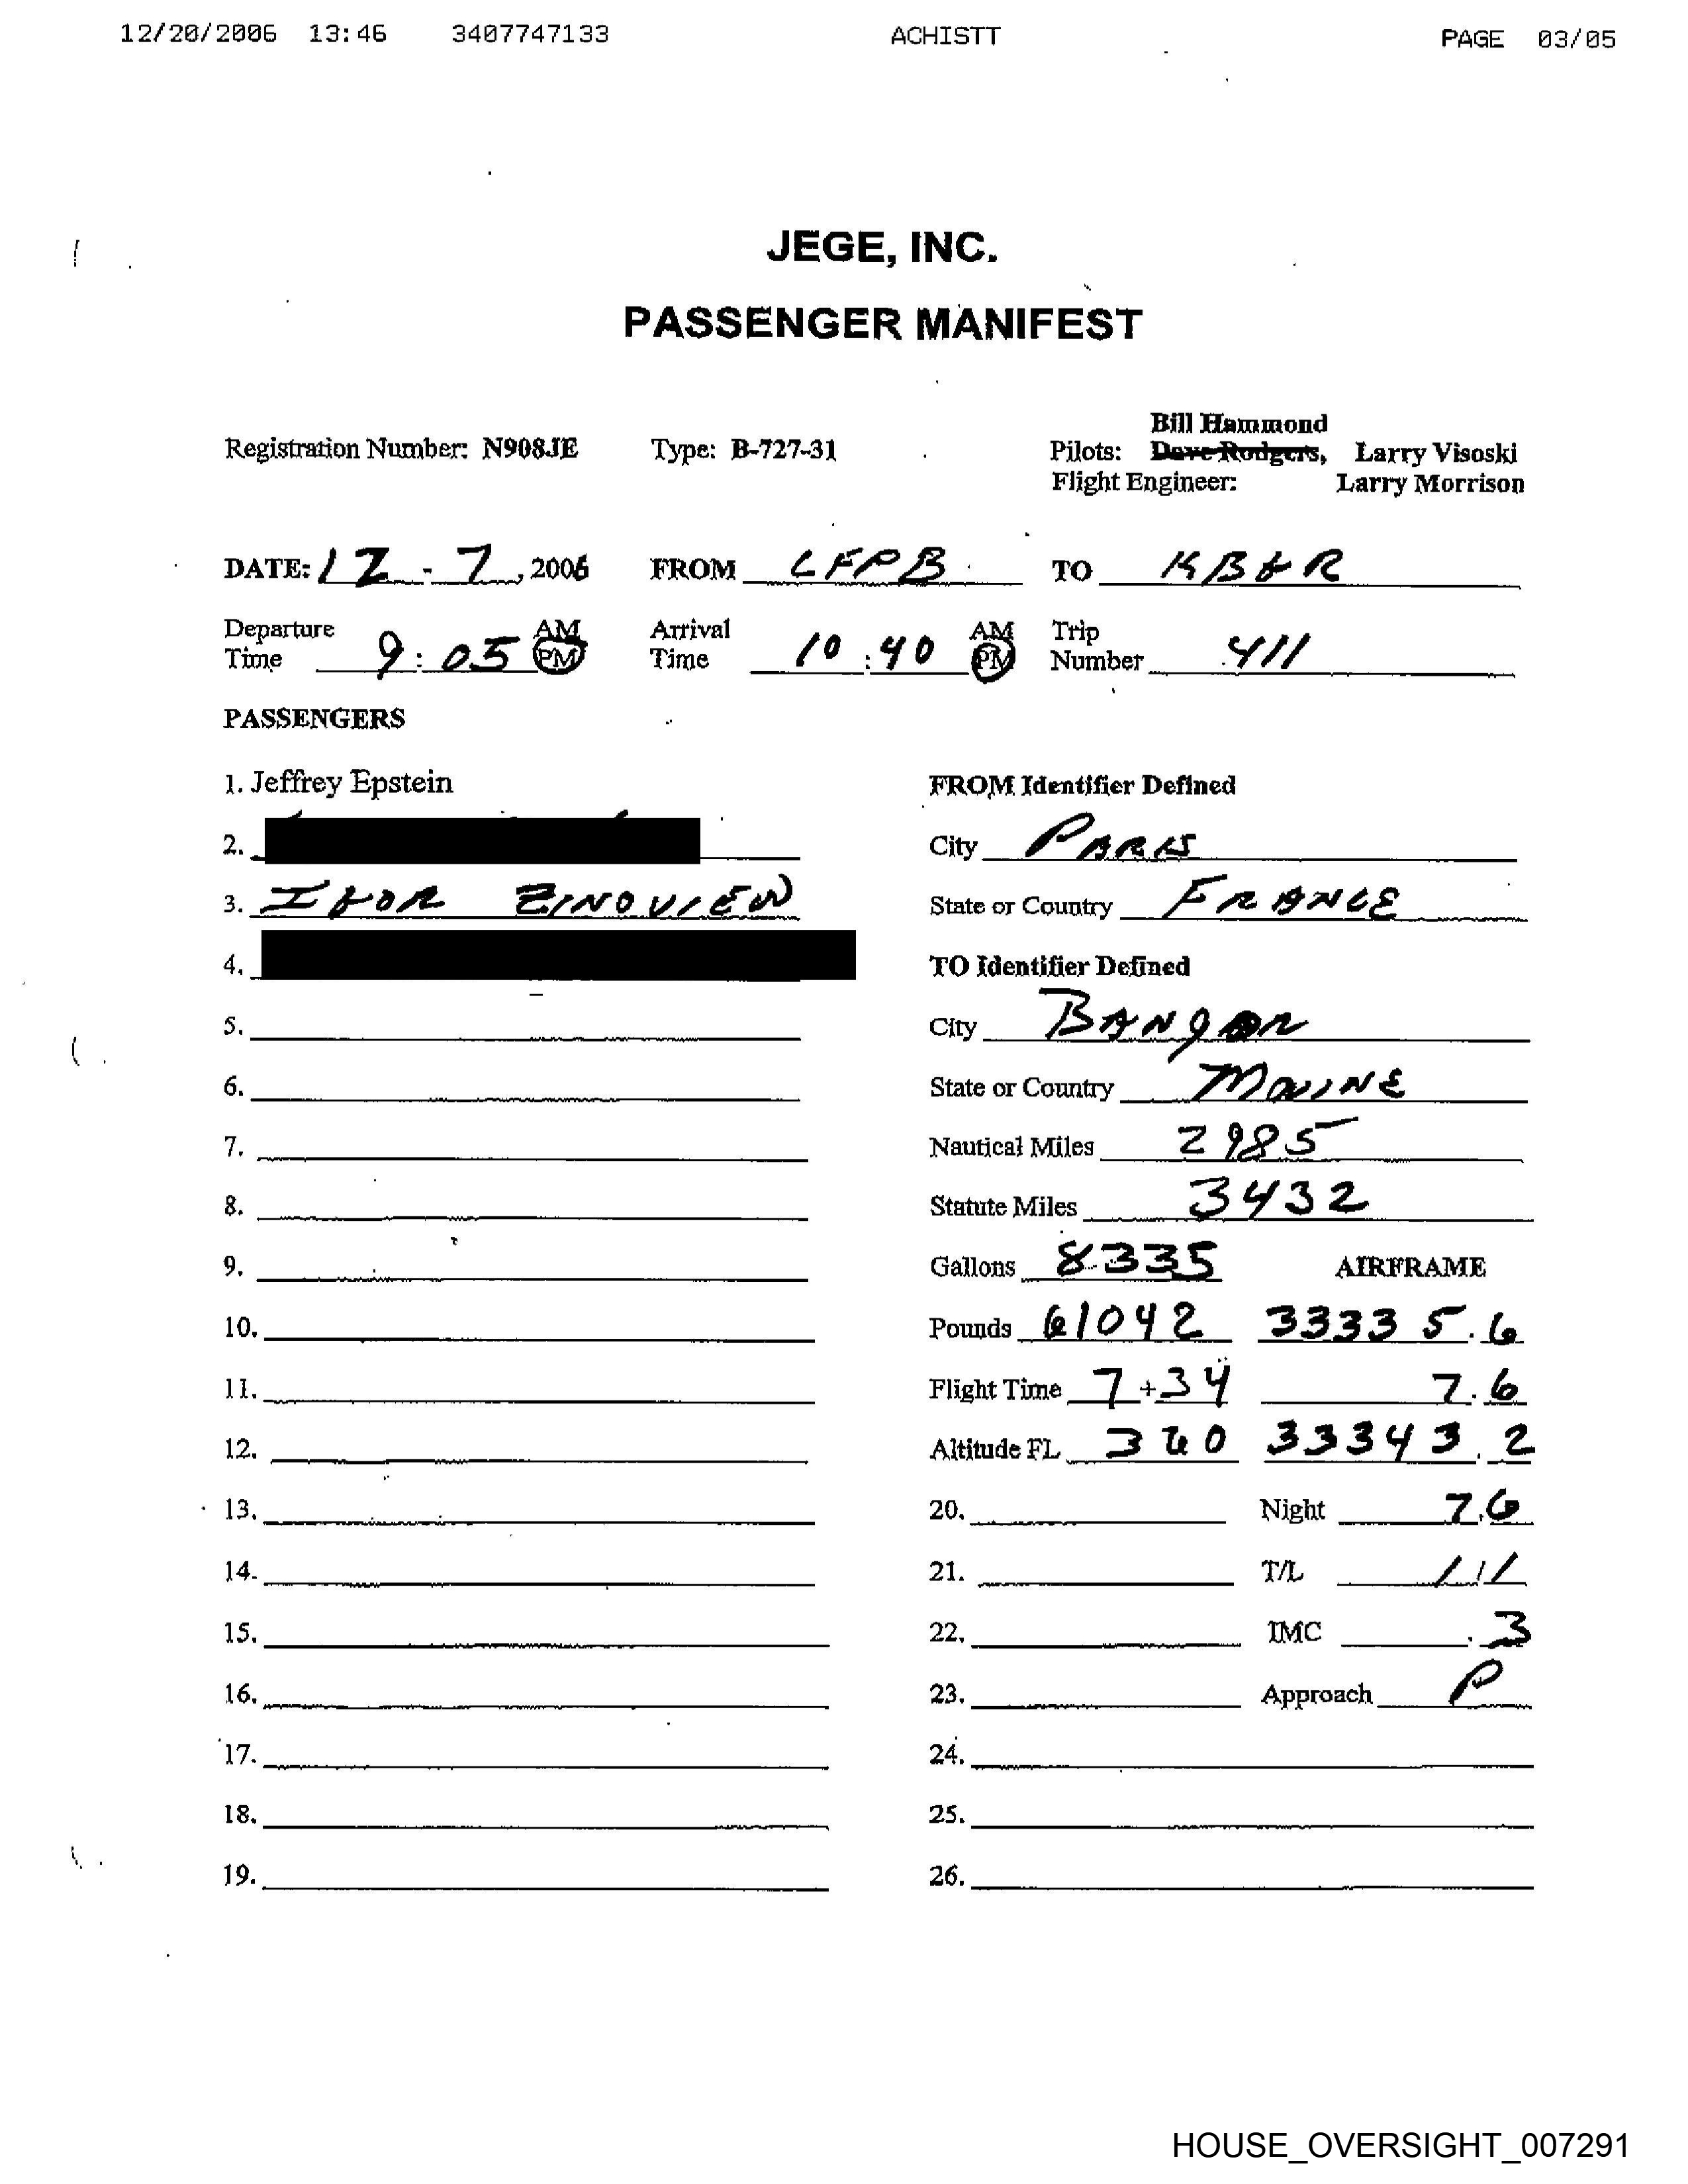 12/20/2006 13:46 3407747133 ACHISTT PAGE 03/05
JEGE, INC.
PASSENGER MANIFEST
Bill Hammond
Registration Number: N908JE Type: B-727-31 Pilots: Dave Rodgers, Larry Visoski
Flight Engineer: Larry Morrison
DATE: 12 - 7, 2006 FROM LFPB TO KBGR
Departure Time 9:05 AM PM Arrival Time 10:40 AM PM Trip Number 411
PASSENGERS
1. Jeffrey Epstein FROM Identifier Defined
2. City PARIS
3. IGOR ZINOVIEW State or Country FRANCE
4. TO Identifier Defined
5. City BANgOR
6. State or Country MAINE
7. Nautical Miles 2985
8. Statute Miles 3432
9. Gallons 8335 AIRFRAME
10. Pounds 61042 33335.6
11. Flight Time 7+34 7.6
12. Altitude FL 33343.2
13. 20. Night 7.6
14. 21. T/L 1/1
15. 22. IMC .3
16. 23. Approach P
17. 24.
18. 25.
19. 26.
HOUSE_OVERSIGHT_007291